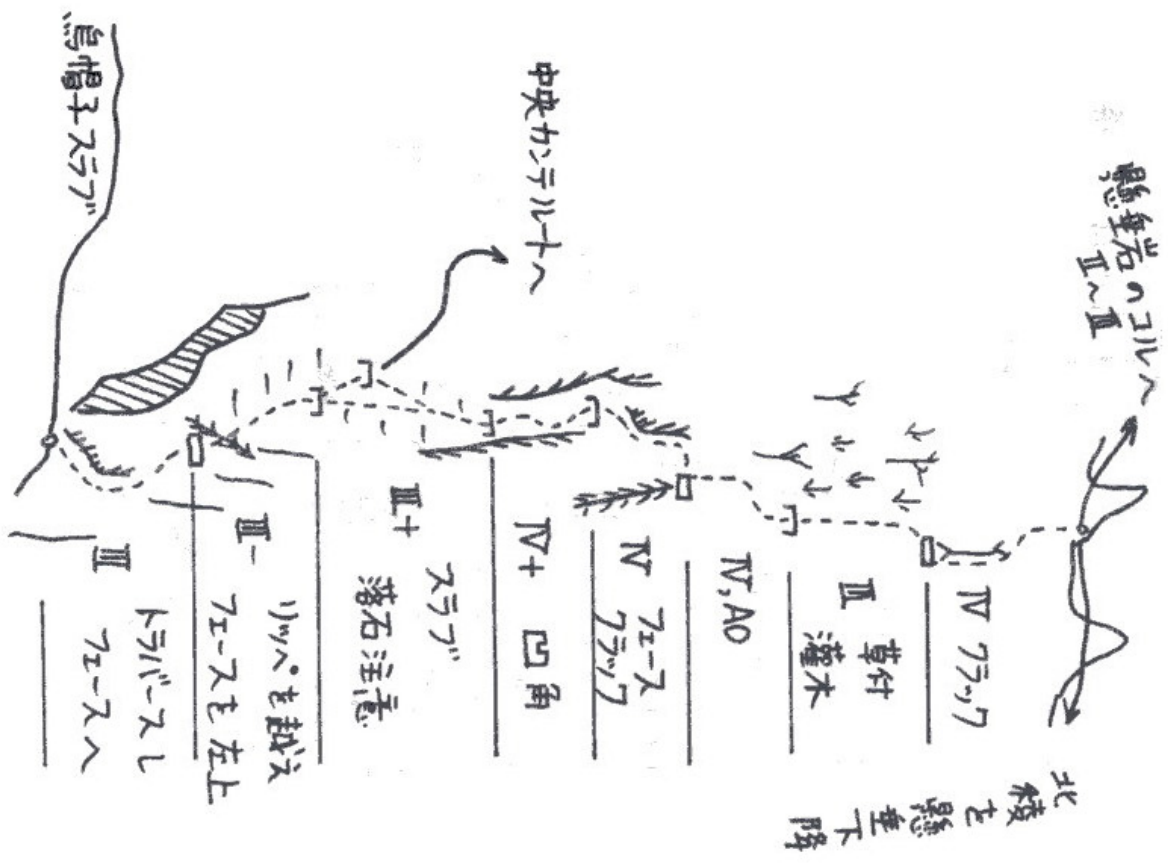 懸垂岩のコルへ
Ⅱ〜Ⅲ
北稜を懸垂下降
Ⅳ クラック
Ⅲ 草付
灌木
Ⅳ, A0
Ⅳ フェース
クラック
Ⅳ+ 凹角
中央カンテルートへ
Ⅲ+ スラブ
落石注意
Ⅲ- リッペを越え
フェースを左上
Ⅲ トラバースし
フェースへ
烏帽子スラブ